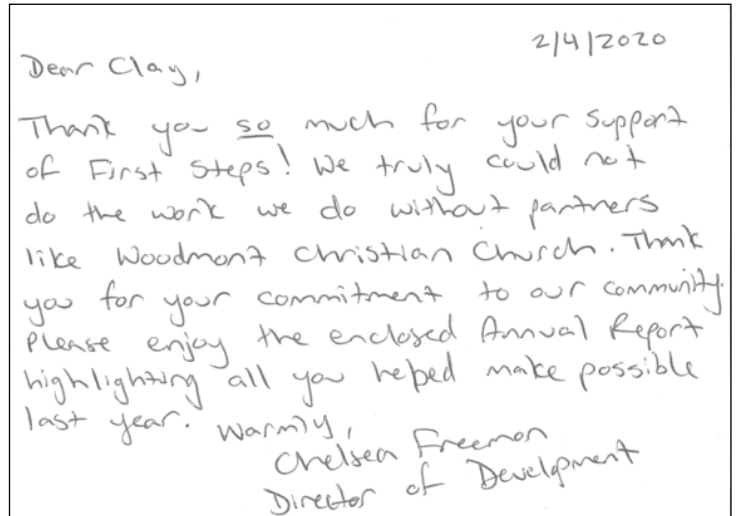 2/4/2020
Dear Clay,
Thank you so much for your support
of First Steps! We truly could not
do the work we do without partners
like Woodmont Christian Church. Thank
you for your commitment to our community.
Please enjoy the enclosed Annual Report
highlighting all you helped make possible
last year. Warmly,
Chelsea Freemon
Director of Development